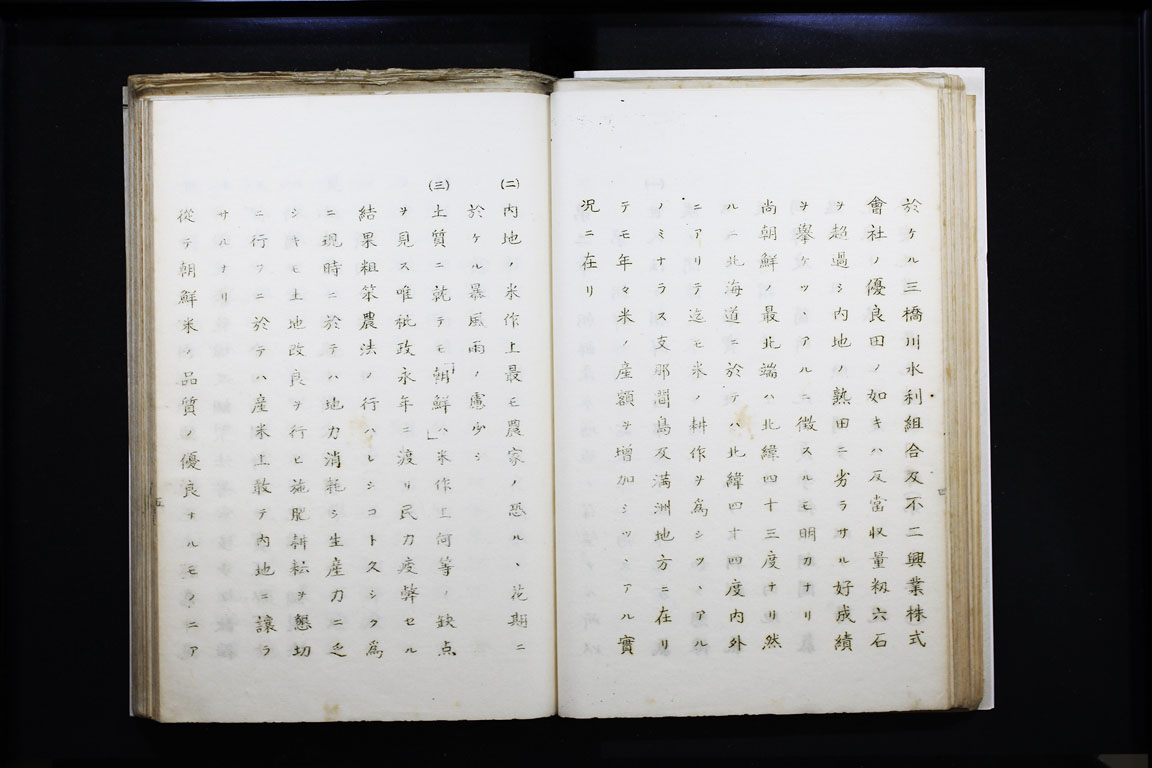 於ケル三橋川水利組合及不二興業株式
會社ノ優良田ノ如キハ反當收量籾六石
ヲ超過シ內地ノ熟田ニ劣ラサル好成績
ヲ擧ケツヽアルニ徵スルモ明カナリ
尚朝鮮ノ最北端ハ北緯四十三度ナリ然
ルニ北海道ニ於テハ北緯四十四度內外
ニアリテ迄モ米ノ耕作ヲ爲シツヽアル
ノミナラス支那間島及滿洲地方ニ在リ
テモ年々米ノ産額ヲ增加シツヽアル實
况ニ在リ
四
(二)內地ノ米作上最モ農家ノ恐ルヽ花期ニ
於ケル暴風雨ノ慮少シ
(三)土質ニ就テモ朝鮮ハ米作上何等ノ缺点
ヲ見ス唯秕政永年ニ渡リ民力疲弊セル
結果粗笨農法ノ行ハレシコト久シク爲
ニ現時ニ於テハ地力消耗シ生産力ニ乏
シキモ土地改良ヲ行ヒ施肥耕耘ヲ懇切
ニ行フニ於テハ産米上敢テ內地ニ讓ラ
サルナリ
從テ朝鮮米ノ品質ノ優良ナルモノニア
五